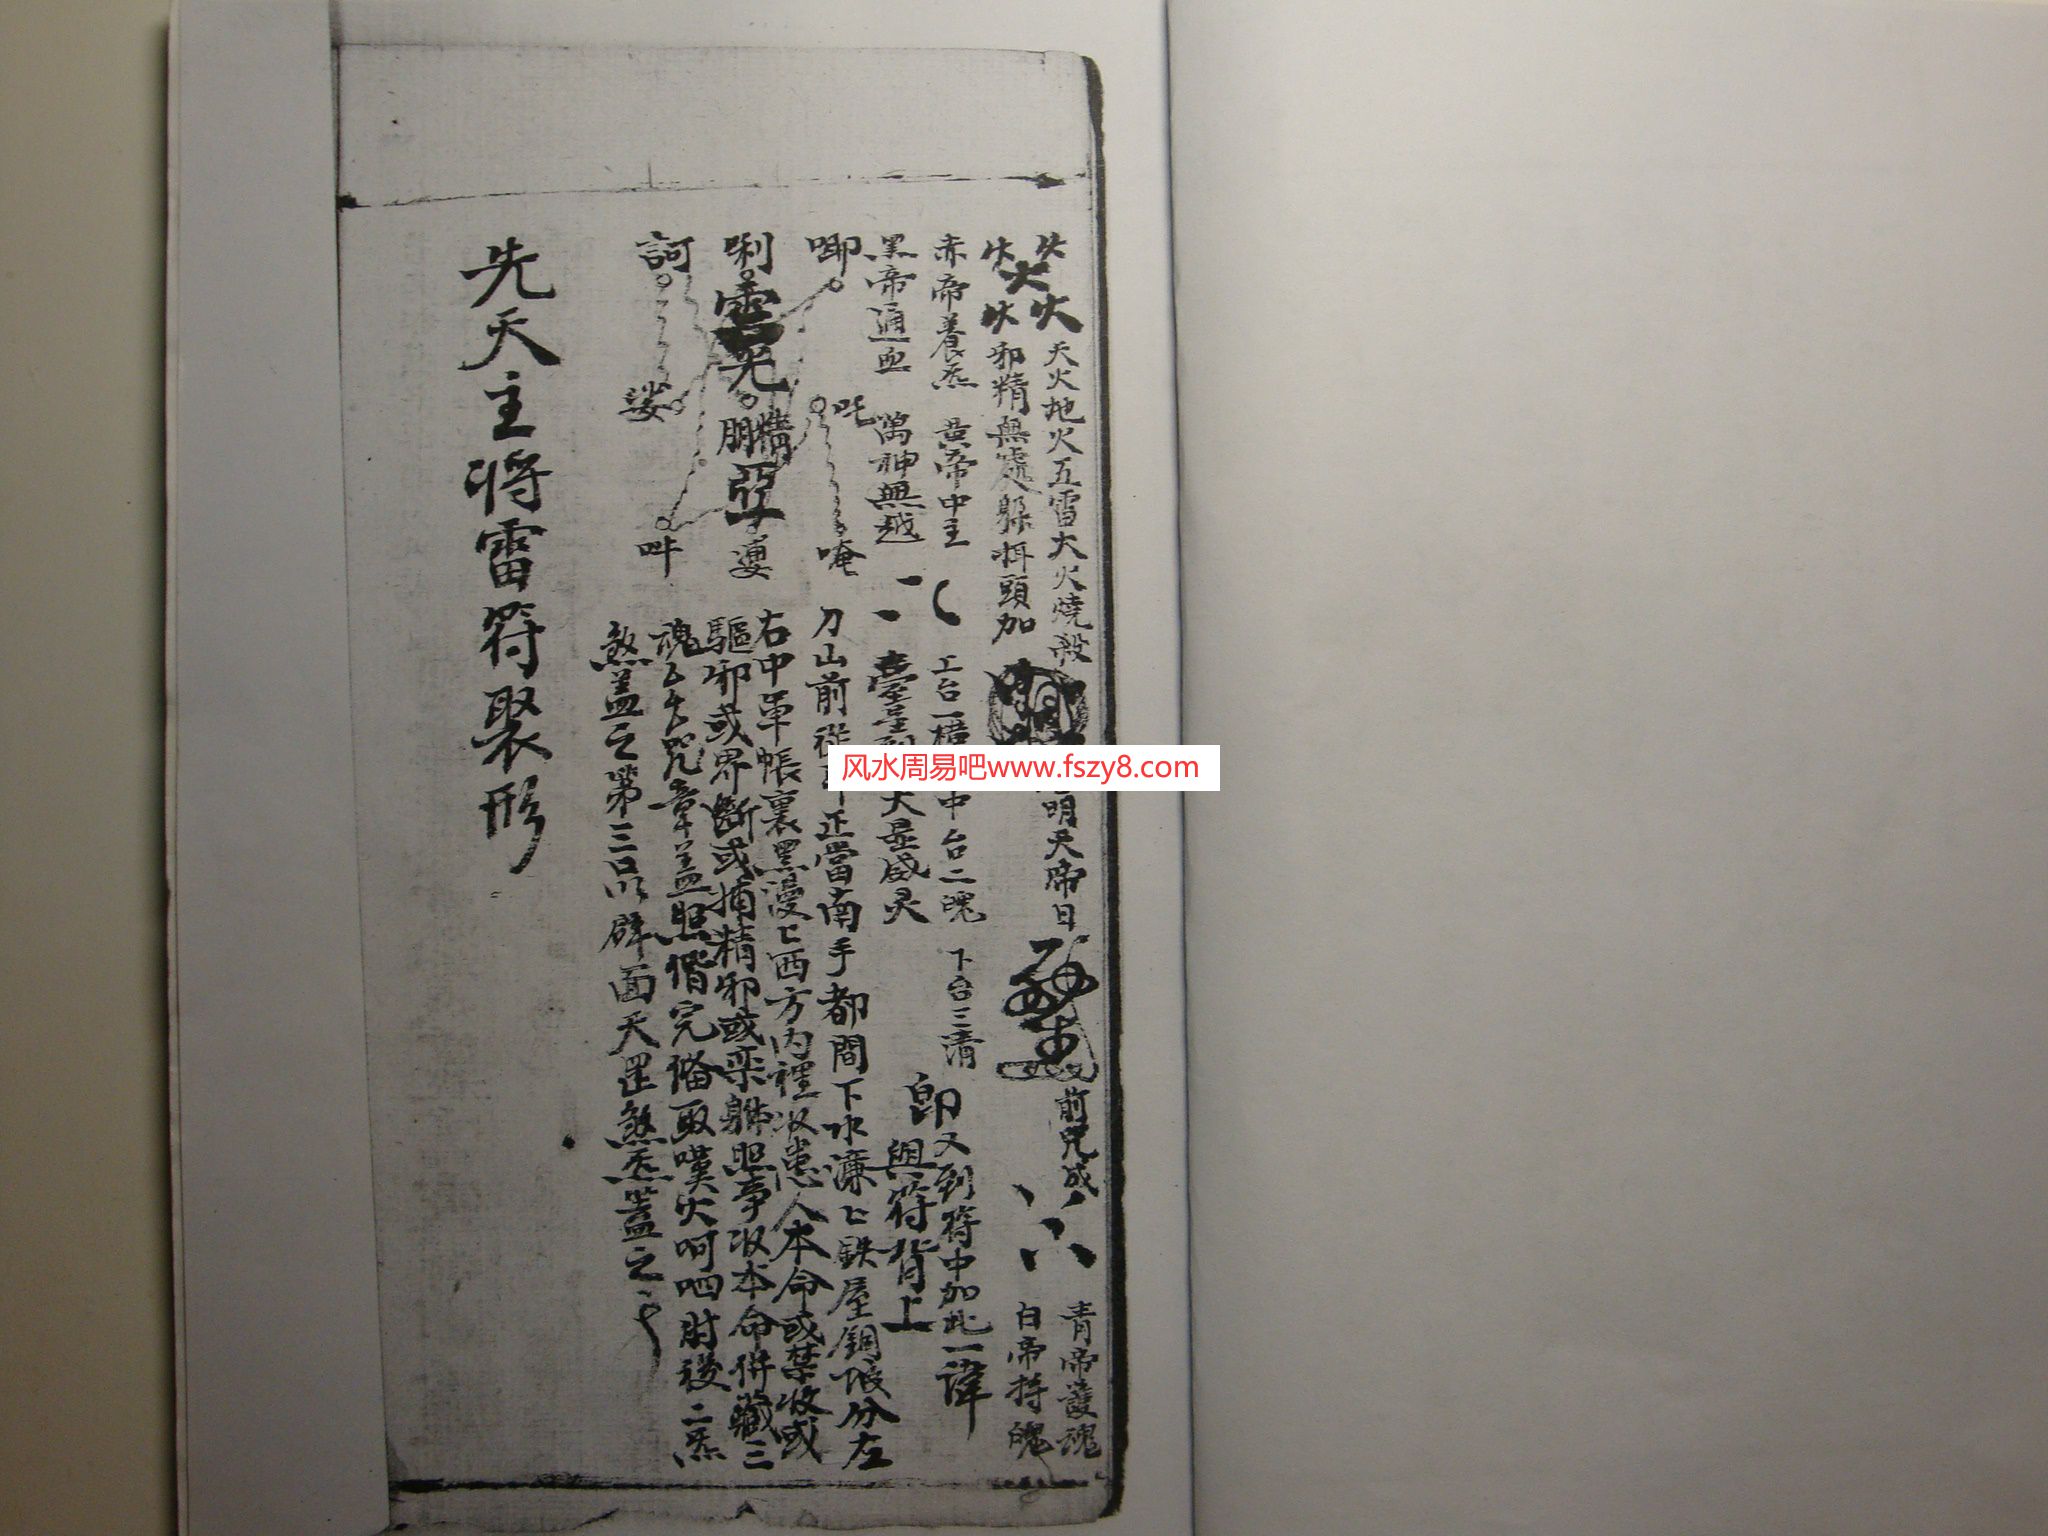 火火火火火 天火地火五雷大火燒殺
邪精無處躲 頭加
明天帝日
前咒成
青帝護魂
白帝持魄
赤帝養炁 黃帝中主
上台一 中台二魄 下台三清
又到符中加此一諱
黑帝通血 萬神無越
臺星 大显威灵
即與符背上
唧 吒 唵
唎 雲光 朋精 亞 婁
訶 娑 吽
刀山前 正當南手都間下水濂匕鉄屋銅 分左
右中軍帳裏黑漫匕西方內裡收患人本命或禁收或
驅邪或界斷或捕精邪或 照事收本命併藏三
魂七 咒章盖照 完俻取嘆火呵呬 後二炁
煞盖之第三口以 面天罡煞炁蓋之
先天主將雷符聚形
风水周易吧www.fszy8.com